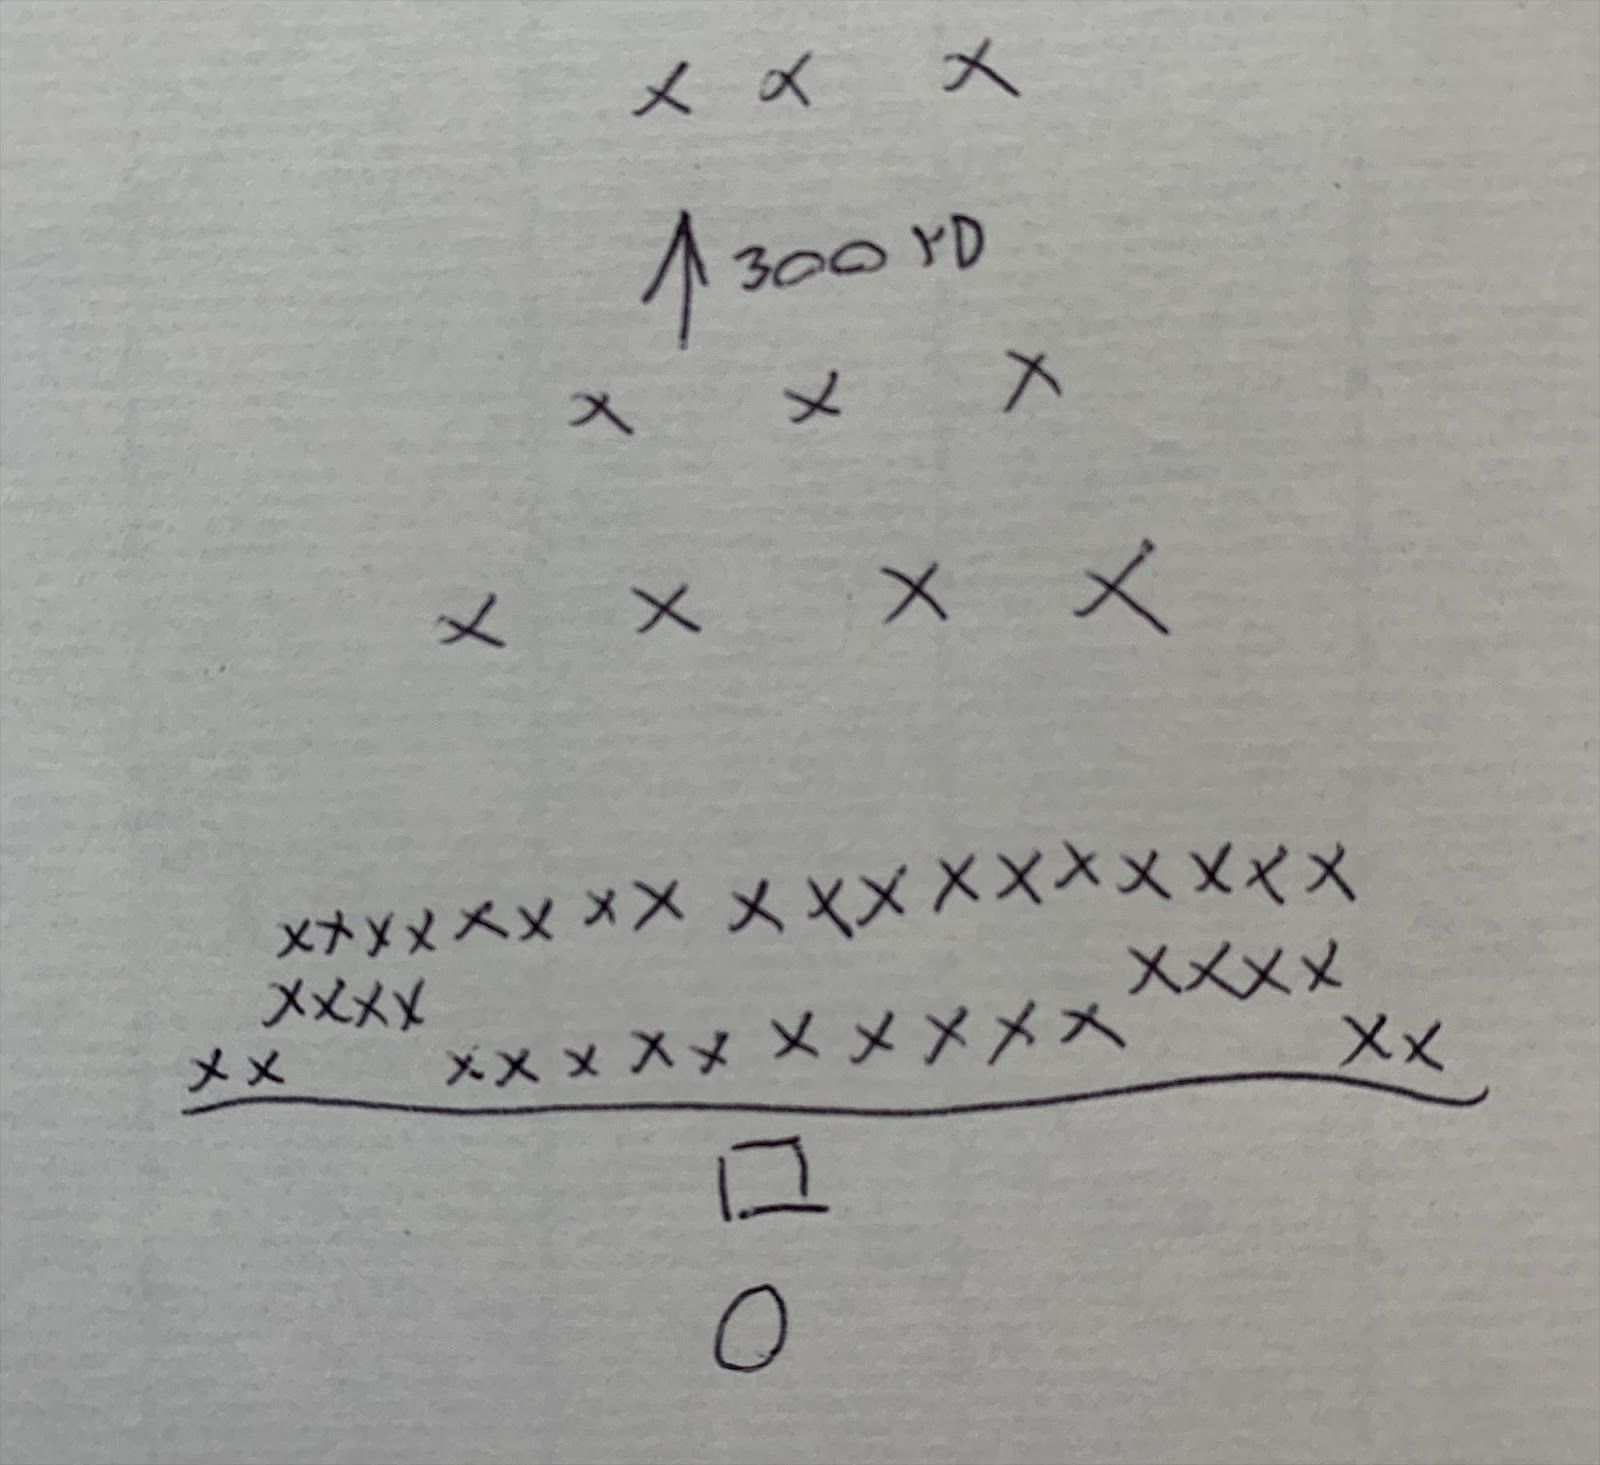 x x x
300 YD
x x x
x x x x
x x x x x x x x x x x x x x x x x x
x x x x x x x x
x x x x x x x x x x x x x x